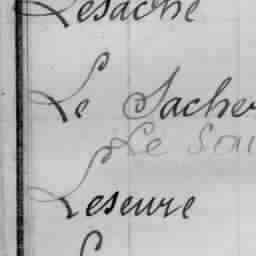 Lesache
Le Sacher
Le Sou
Leseure